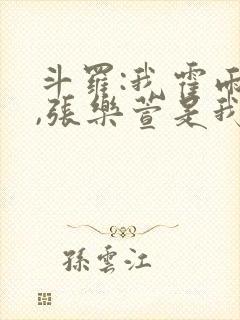 斗羅:我霍雨
,張樂萱是我
孫雲江